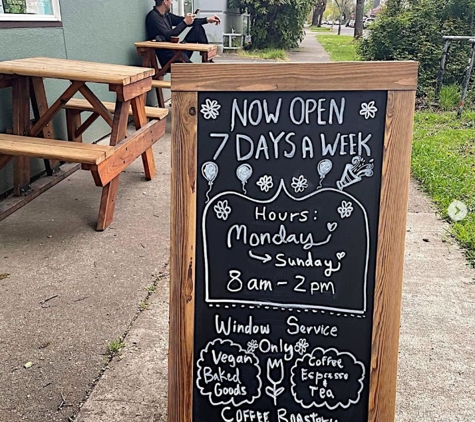 NOW OPEN
7 DAYS A WEEK
Hours:
Monday
Sunday
8am - 2pm
Window Service
Only
Vegan
Baked
Goods
Coffee
Espresso
&
Tea
COFFEE ROASTERY